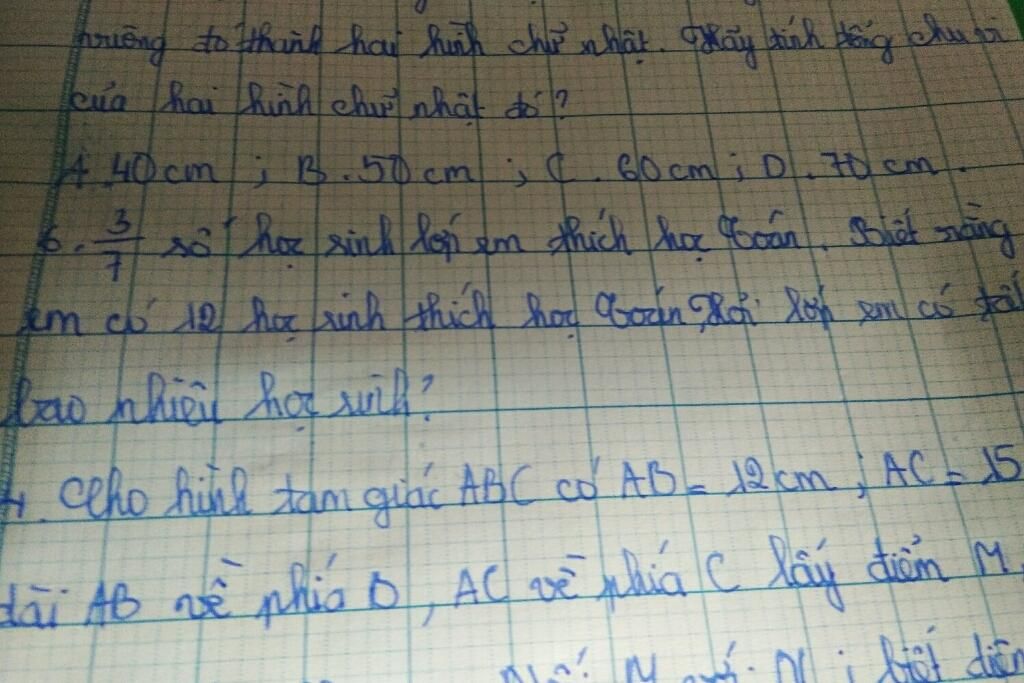 hai hình chữ nhật. Hãy tính tổng chu vi
của hai hình chữ nhật đó?
A. 40 cm ; B. 50 cm ; C. 60 cm ; D. 70 cm.
6. 3/7 số học sinh lớp em thích học toán. Biết rằng
em có 12 học sinh thích học toán. Hỏi lớp em có tất
bao nhiêu học sinh?
Cho hình tam giác ABC có AB = 12 cm ; AC = 15
dài AB về phía D, AC về phía C lấy điểm M,
N ; biết diện